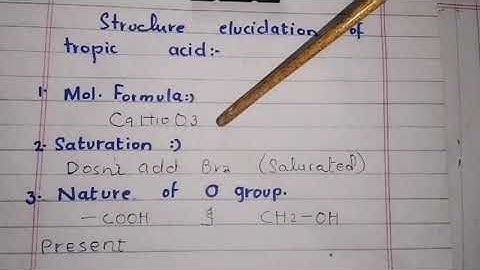 Structure elucidation of
tropic acid:-
1. Mol. Formula:)
C9H10O3
2. Saturation :)
Dosn't add Br2 (Saturated)
3. Nature of O group.
-COOH & CH2-OH
Present